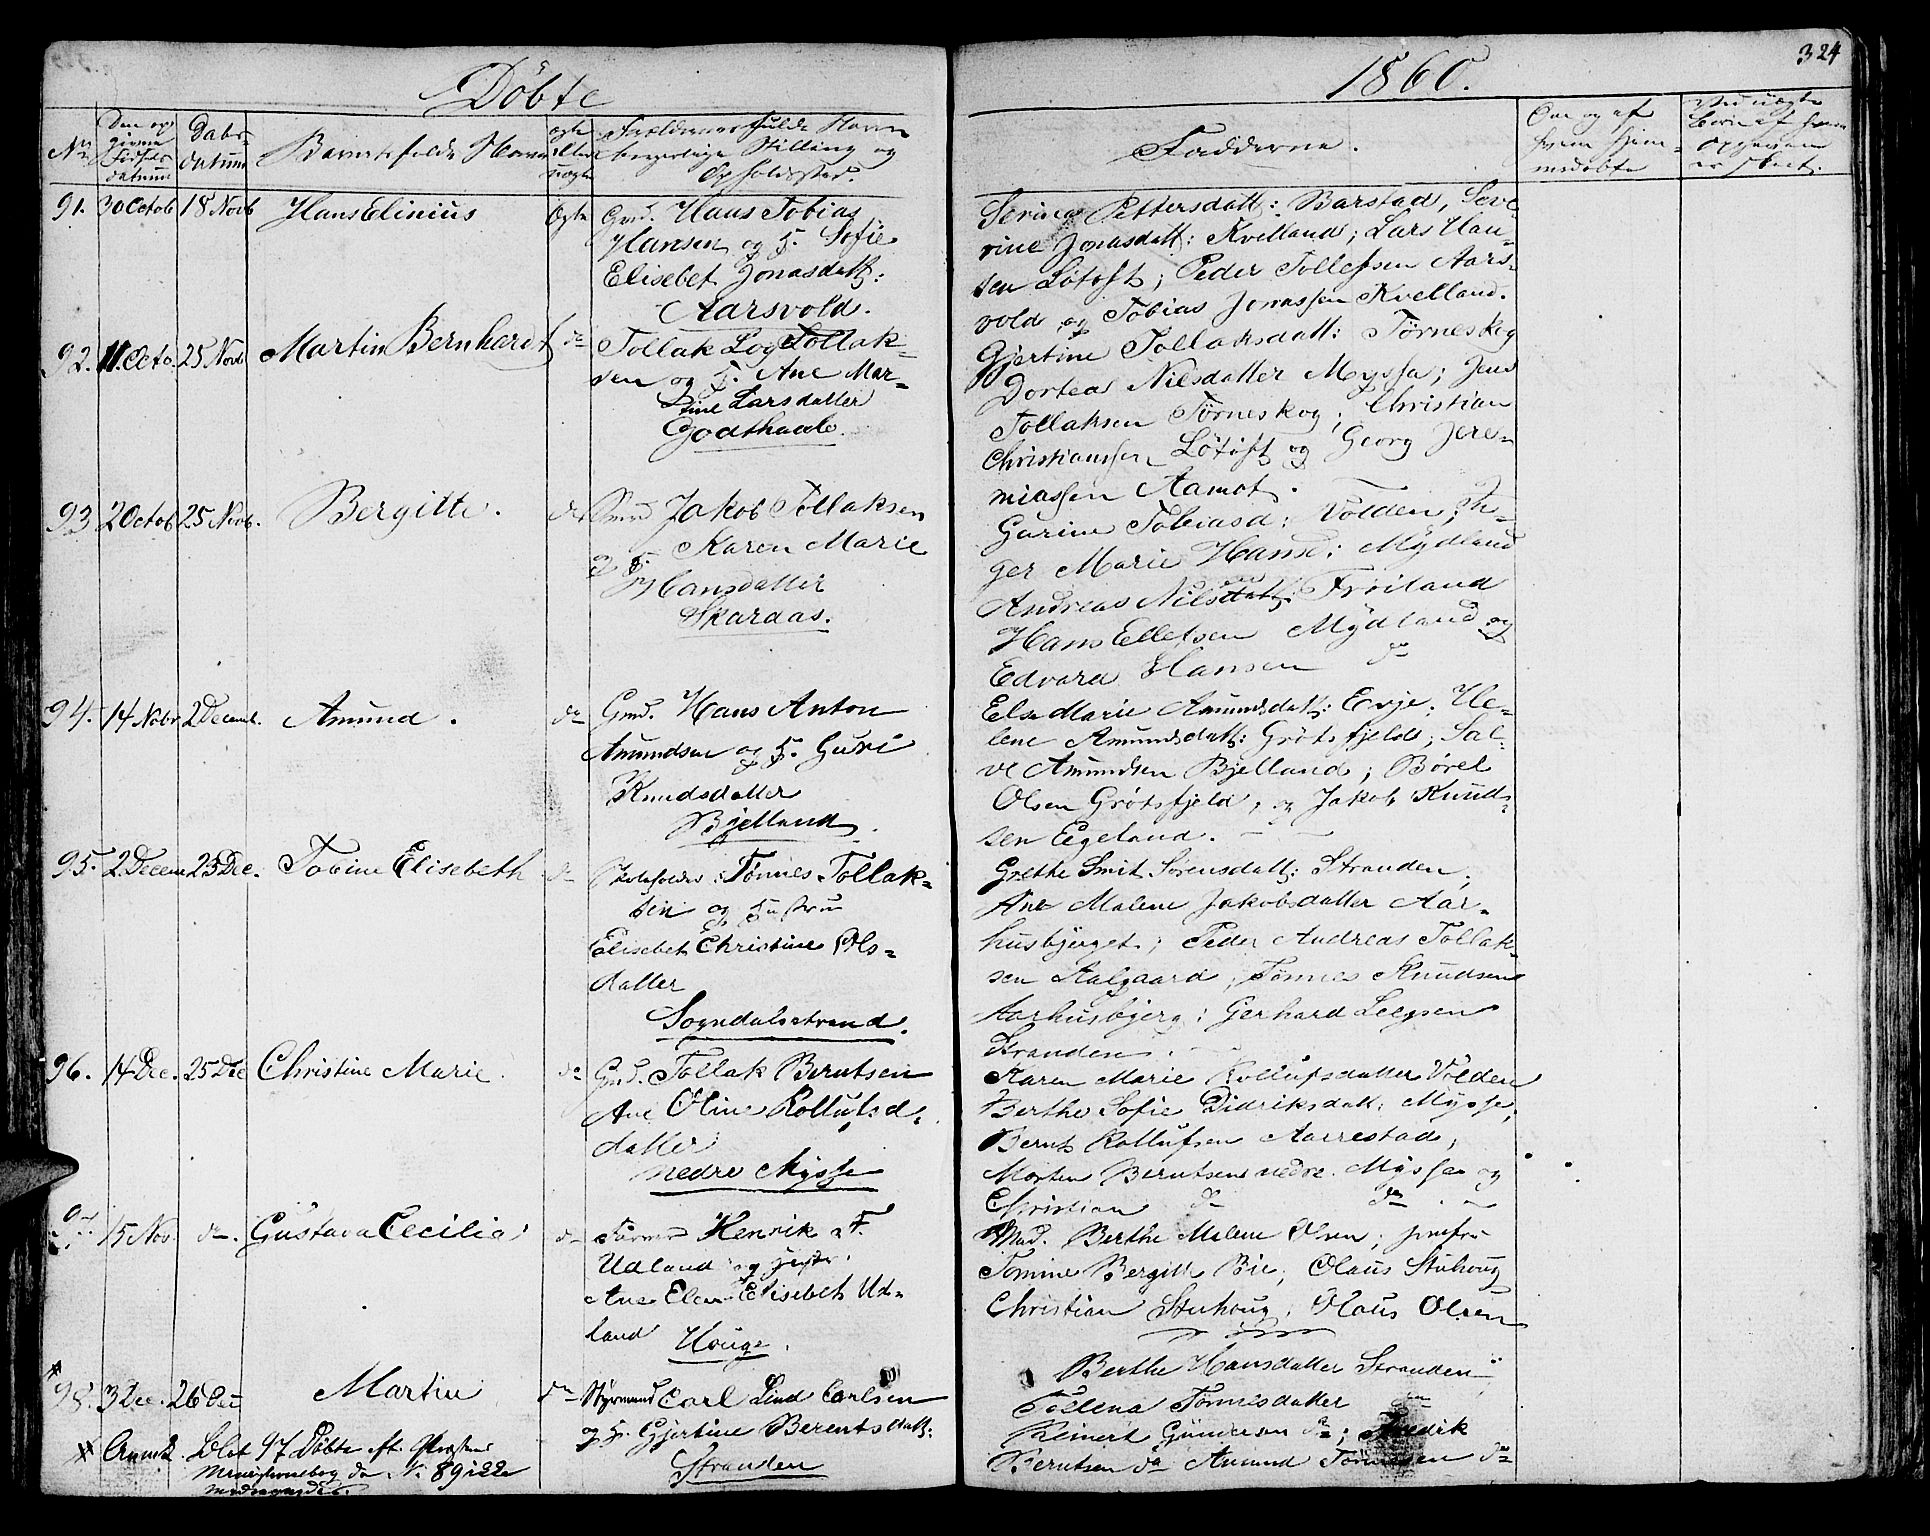 Döbte
1860.
324
No
Den op
givne
Födsels
datum
Daabs-
datum
Barnets fulde Navn
Ægte
eller
uægte
Forældrenes fulde Navn
borgerlige Stilling og
Opholdssted.
Fadderne.
Om og af
hvem hjem-
medöbte
91. 30 Octob 18 Novb Hans Elinius Ægte Grd. Hans Tobias
Hansen og H. Sofie
Elisebet Jonasdatt:
Aarsvold.
Serine Pettersdatt: Barstad, Seve-
rine Jonasdatt: Kvelland; Lars Han-
sen Løtoft; Peder Tollefsen Aars-
vold og Tobias Jonassen Kvelland.
92. 11. Octo. 25 Novb Martin Bernhardt do Tollak Tollak-
sen og H. Ane Mar-
tine Larsdatter
Godthaab.
Gjertine Tollaksdatt: Tørneskog
Dortea Nilsdatter Myssa; Jens
Tollaksen Tørneskog; Christian
Christianssen Løtoft og Georg Jere-
miassen Aamot.
93 2 Octob 25 Novb. Bergitte. do Jakob Tollaksen
og H. Karen Marie
Hansdatter
Skardaas.
Garine Tobiasd: Volden; In-
ger Marie Hansd: Mydland
Andreas Nilsen Frøiland
Hans Ellefsen Mydland og
Edvard Hansen do
94. 14 Nobr 2 Decemb. Amund. do Grd. Hans Anton
Amundsen og H. Guri
Knudsdatter
Bjelland.
Else Marie Amundsdatt: Evje; He-
lene Amundsdatt: Grøtsfjeld; Sal-
ve Amundsen Bjelland; Børel
Olsen Grøtsfjeld, og Jakob Knud-
sen Egeland.
95. 2 Decem 23 Dec. Tobine Elisebeth do Skoleholder Tønnes Tollak-
sen og Hustru
Elisebet Christine Ols-
datter
Sogndalsstrand.
Grethe Smit Sørensdatt: Stranden;
Ane Malene Jakobsdatter Aar-
husbjerget; Peder Andreas Tollak-
sen Aalgaard; Tønnes Knudsen
Aarhusbjerg; Gerhard
Stranden.
96. 14 Dec. 25 Dec Christine Marie. do Grd. Tollak Berntsen
Ane Oline Rollufsd-
datter
nedre Mysse
Karen Marie Rollufsdatter Volden
Berthe Sofie Didriksdatt: Mysse,
Bernt Rollufsen Aarrestad,
Morten Berntsen nedre Mysse og
Christian do do
97. 15 Nov. do. Gustava Cecilia do Henrik F.
Udland og Hustr.
Ane Elen Elisebet Ud-
land Houge.
Mad. Berthe Malene Olsen; Jomfru
Tomine Bergitte Bie, Olaus Stuhoug
Christian Stuhoug, Olaus Olsen
98. 3 Dec. 26 Dec Martin do Styrmand Carl Lind Carlsen
og H. Gjertine Berentsdatt:
Stranden
Berthe Hansdatter Stranden
Tollena Tønnesdatter do
Reinert Gundersen do; Fredrik
Berntsen do Amund Tønnesen do
* Anmk Blot 97 Döbte
No 89 ikke